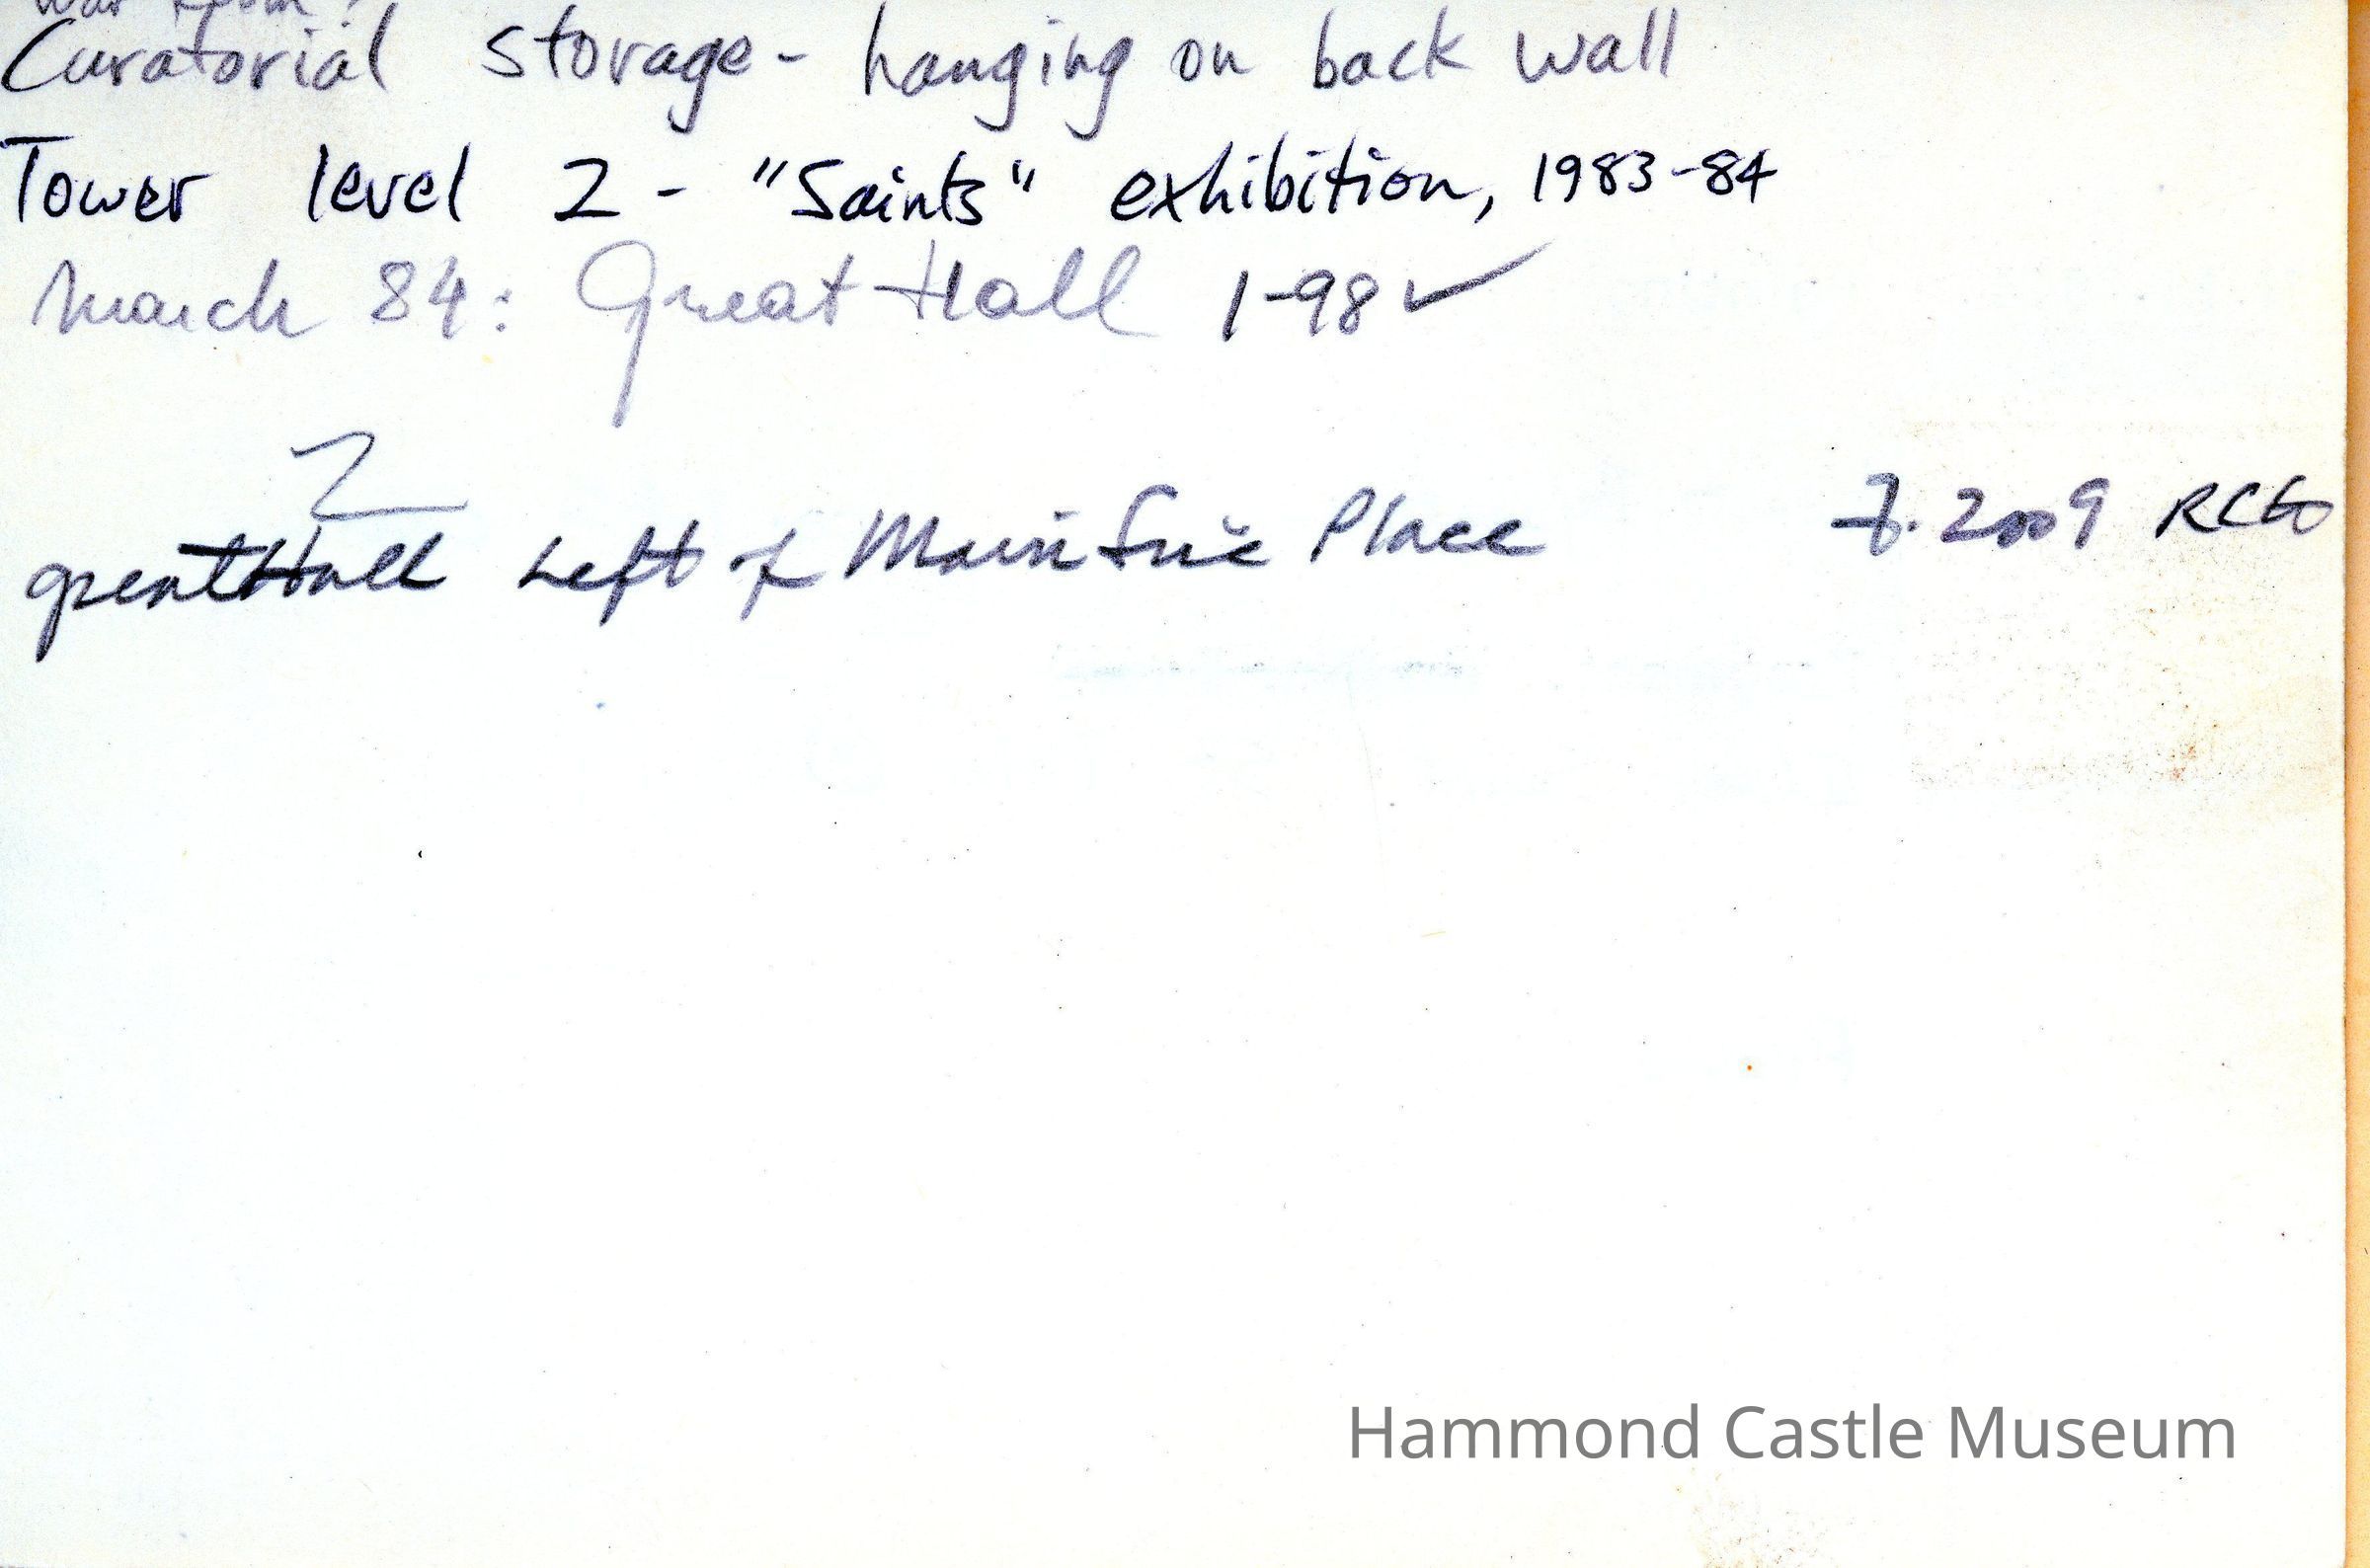 Curatorial storage - hanging on back wall
Tower level 2 - "Saints" exhibition, 1983-84
March 84: Great Hall 1-98 ✓
2
great Hall Left of Main Fire Place 7. 2009
Hammond Castle Museum